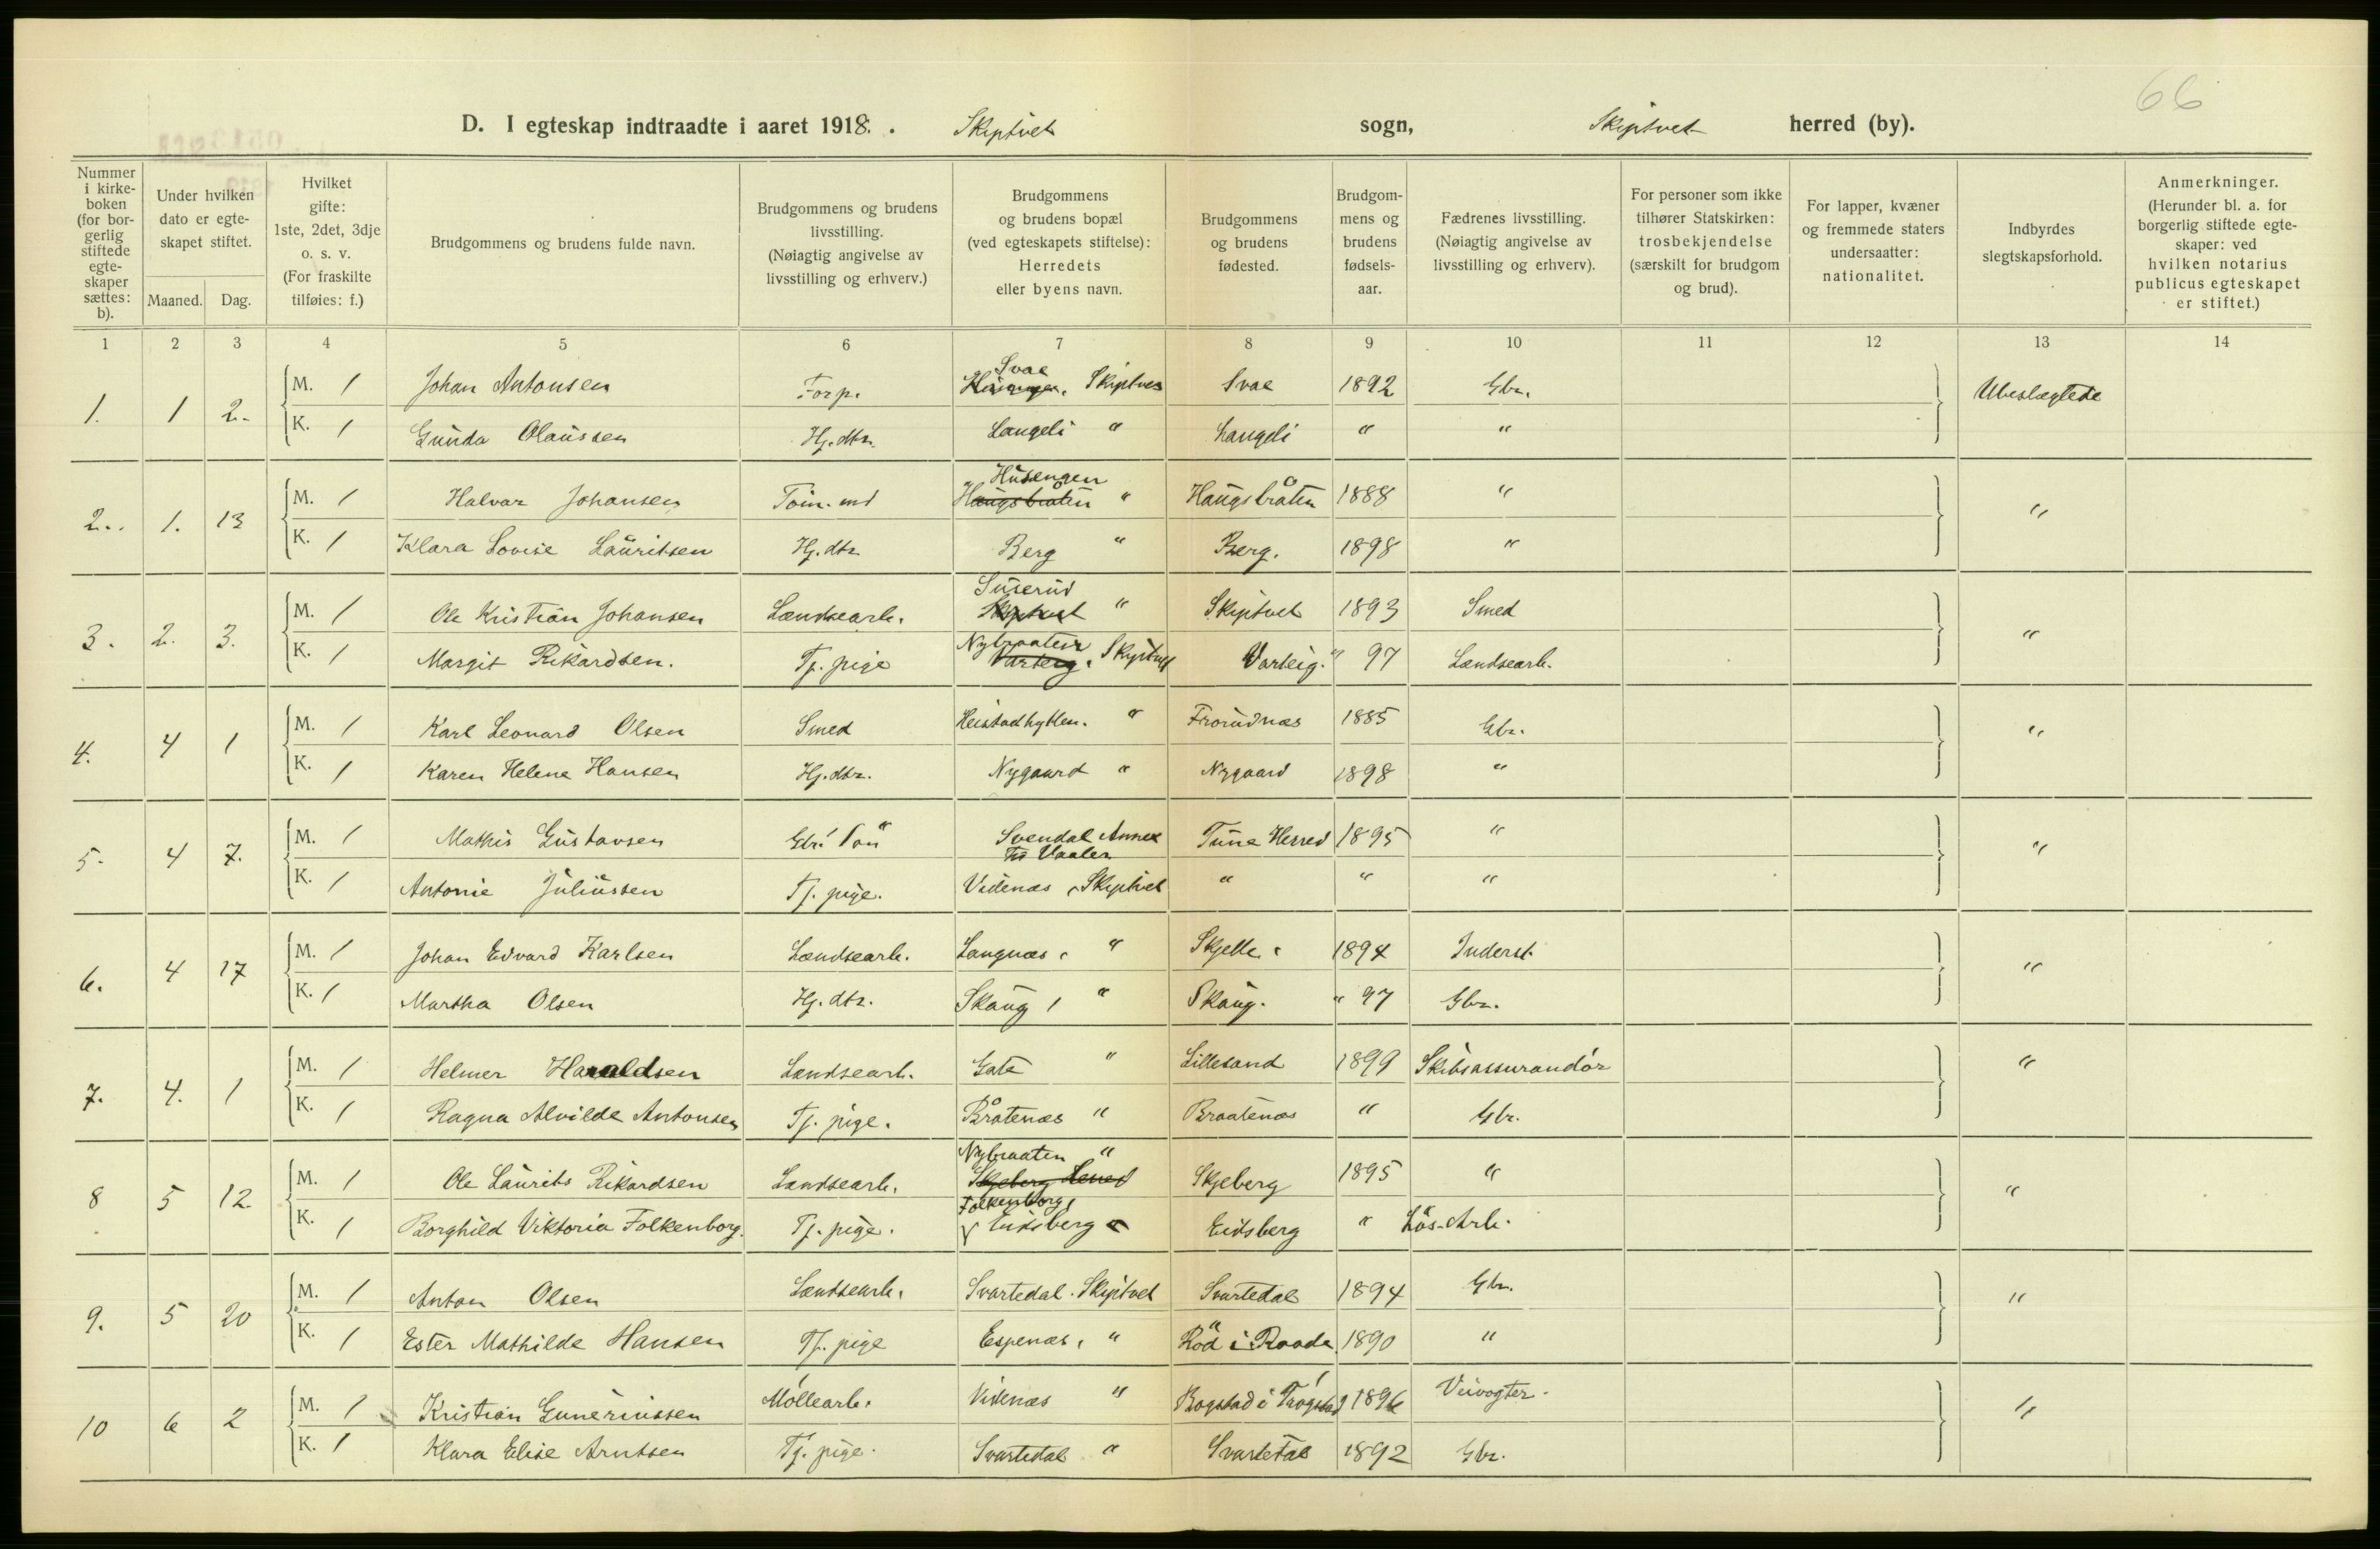 66
D. I egteskap indtraadte i aaret 1918. . Skiptvet sogn, Skiptvet herred (by).
Nummer i kirke-boken (for bor-gerlig stiftede egte-skaper sættes: b).
Under hvilken dato er egte-skapet stiftet.
Maaned. Dag.
Hvilket gifte: 1ste, 2det, 3dje o. s. v. (For fraskilte tilføies: f.)
Brudgommens og brudens fulde navn.
Brudgommens og brudens livsstilling. (Nøiagtig angivelse av livsstilling og erhverv.)
Brudgommens og brudens bopæl (ved egteskapets stiftelse): Herredets eller byens navn.
Brudgommens og brudens fødested.
Brudgom-mens og brudens fødsels-aar.
Fædrenes livsstilling. (Nøiagtig angivelse av livsstilling og erhverv).
For personer som ikke tilhører Statskirken: trosbekjendelse (særskilt for brudgom og brud).
For lapper, kvæner og fremmede staters undersaatter: nationalitet.
Indbyrdes slegtskapsforhold.
Anmerkninger. (Herunder bl. a. for borgerlig stiftede egte-skaper: ved hvilken notarius publicus egteskapet er stiftet.)
1 2 3 4 5 6 7 8 9 10 11 12 13 14
1. 1 2. M. 1 Johan Antonsen Forp. Svae Skiptvet Svae 1892 Gbr. Ubeslægtede
K. 1 Gunda Olaussen Hj. dtr. Langeli " Langeli " "
2. 1. 13 M. 1 Halvar Johansen Töm. md Husengen Haugsbråten " Haugsbråten 1888 " "
K. 1 Klara Lovise Lauritsen Hj. dtr. Berg " Berg. 1898 "
3. 2. 3. M. 1 Ole Kristian Johansen Landsearb. Suserud Skiptvet " Skiptvet 1893 Smed "
K. 1 Margit Rikardsen. Tj. pige Nybraaten Varteig. Skiptvet Varteig. " 97 Landsearb.
4. 4 1 M. 1 Karl Leonard Olsen Smed Heistadhytten. " Frorudnæs 1885 Gbr. "
K. 1 Karen Helene Hansen Hj. dtr. Nygaard " Nygaard 1898 "
5. 4 7. M. 1 Mathis Gustavsen Gbr. Svendal Annex til Vaaler Tune Herred 1895 " "
K. 1 Antonie Juliussen Tj. pige. Videnæs, Skiptvet " " "
6. 4 17 M. 1 Johan Edvard Karlsen Landsearb. Langnæs, " Skjelle, 1894 Inderst. "
K. 1 Martha Olsen Hj. dtr. Skaug, " Skaug. " 97 Gbr.
7. 4. 1 M. 1 Helmer Haraldsen Landsearb. Gate " Lillesand 1899 Skibsassurandór "
K. 1 Ragna Alvilde Antonsen Tj. pige. Bråtenæs " Braatenæs " Gbr.
8 5 12. M. 1 Ole Laurits Rikardsen Landsearb. Nybraaten " Skjeberg Herred Skjeberg 1895 " "
K. 1 Borghild Viktoria Folkenborg. Tj. pige. Folkenborg, Eidsberg Eidsberg " Lös-Arb.
9. 5 20 M. 1 Anton Olsen Landsearb. Svartedal. Skiptvet Svartedal 1894 Gbr. "
K. 1 Ester Mathilde Hansen Tj. pige Espenæs, " Röd i Raade 1890 "
10 6 2 M. 1 Kristian Gunerinssen Móllearb. Videnæs " Bogstad i Trógstad 1896 Veivogter. "
K. 1 Klara Elise Arntsen Tj. pige. Svartedal " Svartedal 1892 Gbr.